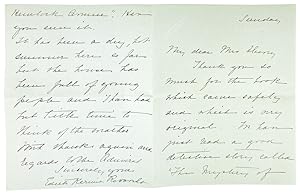 Sunday
My dear Mrs
Thank you so
much for the book
which came safely
and which is very
original. I have
just read a good
detective story called
"The Mystery of
Hemlock Avenue". Have
you seen it.
It has been a dry, hot
summer here so far
but the house has
been full of young
people and I have had
but little time to
think of the weather
With thanks again and
regards to the Admiral
Sincerely yours
Edith Kermit Roosevelt